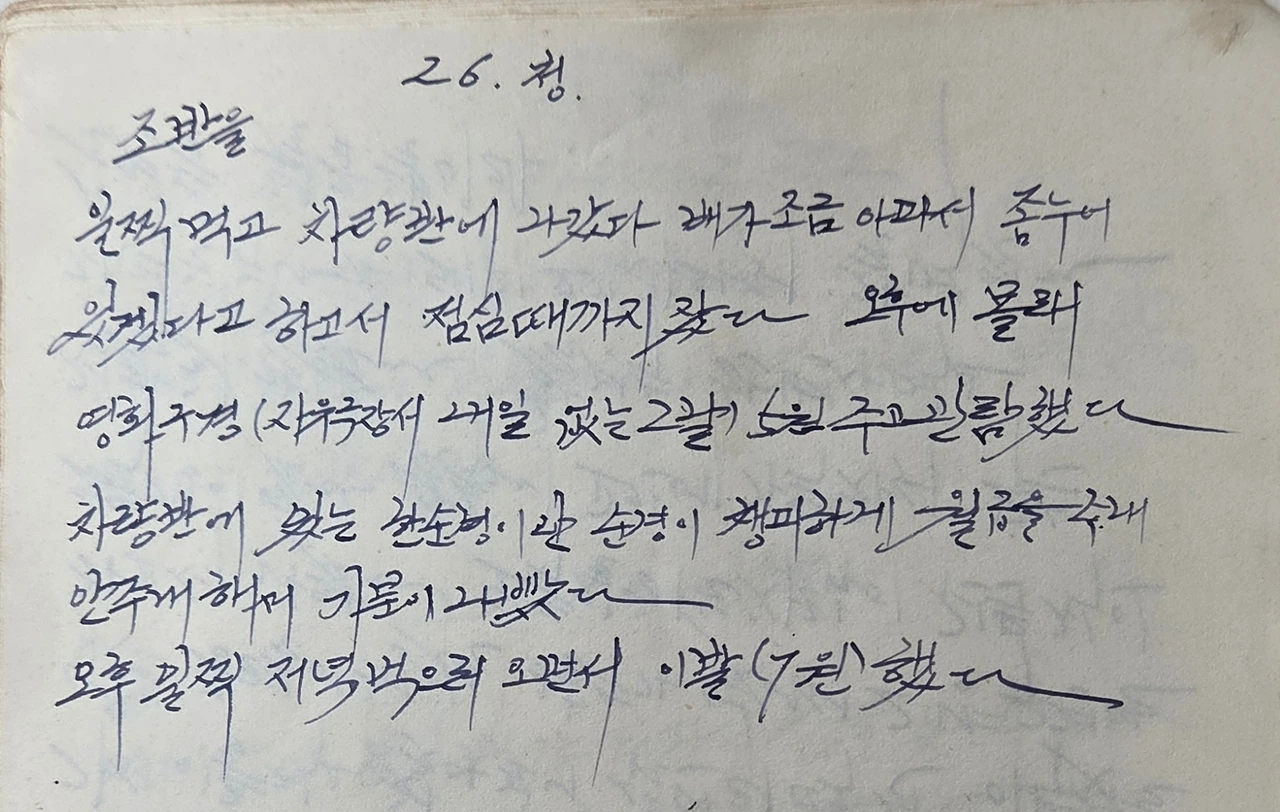 26. 청.
조반을
일찍 먹고 차량반에 나갔다 배가 조금 아파서 좀 누어
있겠다고 하고서 점심때까지 잤다 오후에 몰래
영화구경 (자유극장서 내일 없는 그날) 5원 주고 관람했다
차량반에 있는 한순경이란 순경이 챙피하게 월급을 주내
안주내 하며 기분이 나빴다
오후 일찍 저녁먹으러 오면서 이발 (7원) 했다